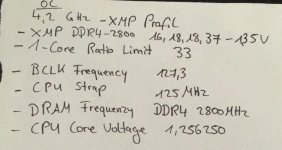 OC
4,2 GHz - XMP Profil
- XMP DDR4-2800 16,18,18,37 - 1,35V
- 1-Core Ratio Limit 33
- BCLK Frequency 127,3
- CPU Strap 125 MHz
- DRAM Frequenzy DDR4 2800MHz
- CPU Core Voltage 1,256250